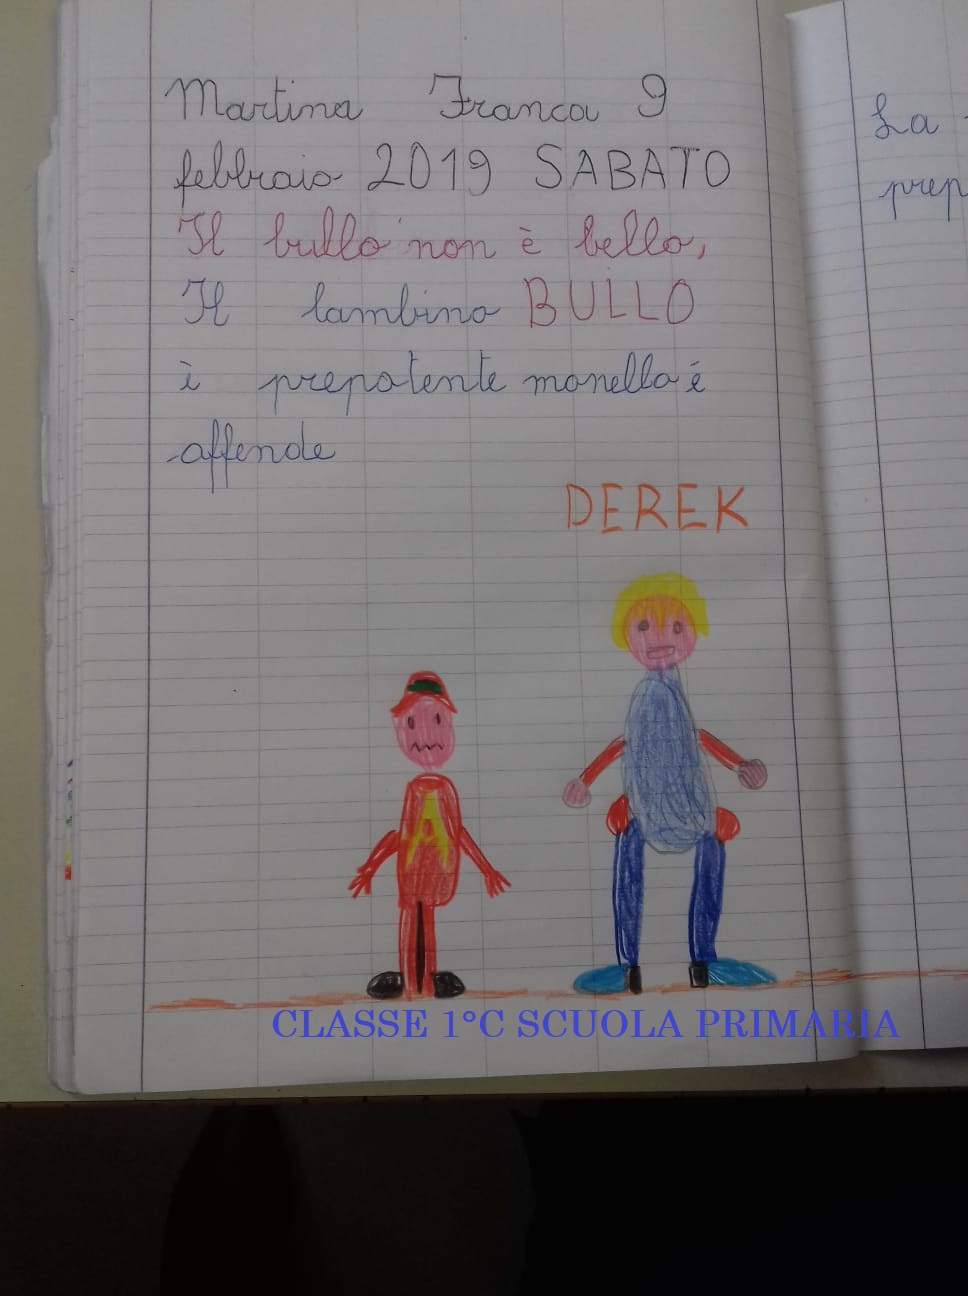 Martina Franca 9
febbraio 2019 SABATO
Il bullo non è bello,
Il bambino BULLO
è prepotente monello é
offende
DEREK
La
prep
CLASSE 1°C SCUOLA PRIMARIA